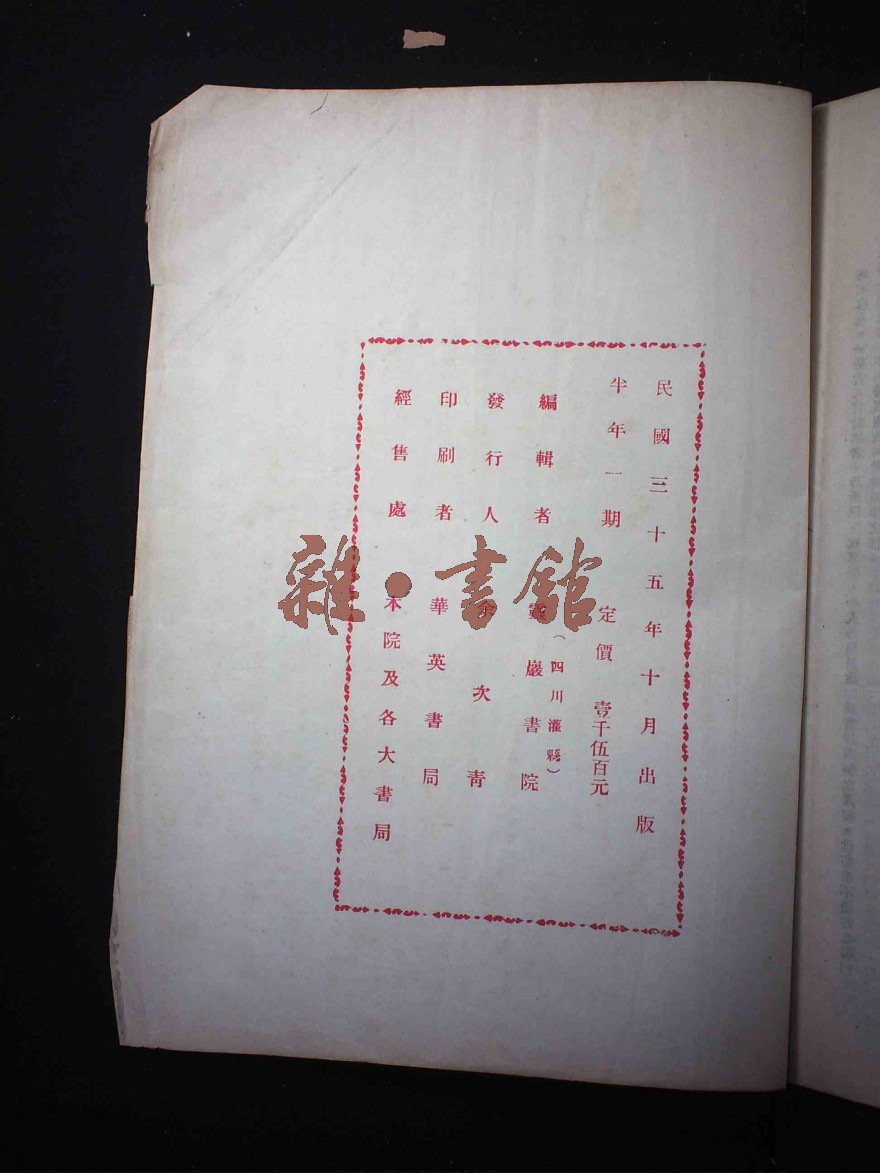 民國三十五年十月出版
半年一期 定價 壹千伍百元
編輯者 靈巖書院
(四川灌縣)
發行人 余次青
印刷者 華英書局
經售處 本院及各大書局
雜·書館